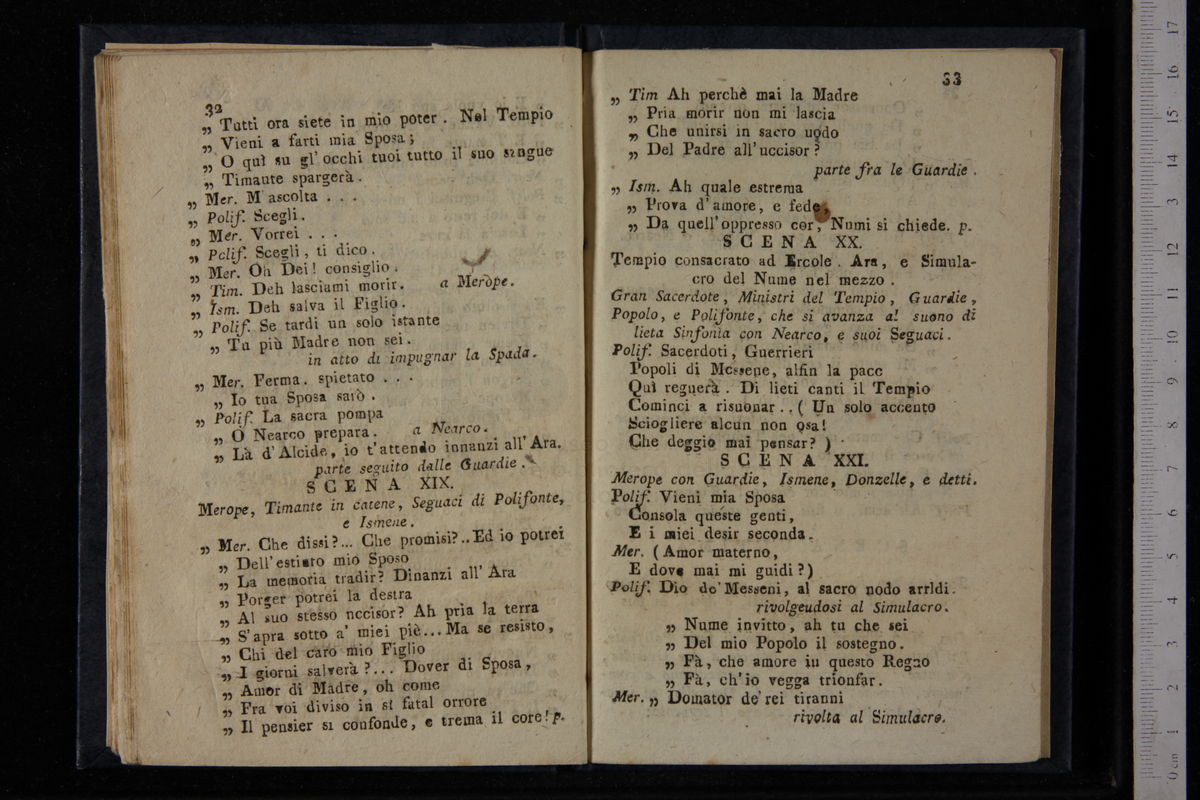 32
„ Tutti ora siete in mio poter . Nel Tempio
„ Vieni a farti mia Sposa ;
„ O quì su gl' occhi tuoi tutto il suo sangue
„ Timante spargerà .
„ Mer. M' ascolta . . .
„ Polif. Scegli .
„ Mer. Vorrei . . .
„ Polif. Scegli , ti dico .
„ Mer. Oh Dei ! consiglio .
„ Tim. Deh lasciami morir. a Meròpe.
„ Ism. Deh salva il Figlio .
„ Polif. Se tardi un solo istante
„ Tu più Madre non sei .
in atto di impugnar la Spada.
„ Mer. Ferma . spietato . . .
„ Io tua Sposa sarò .
„ Polif. La sacra pompa
„ O Nearco prepara . a Nearco.
„ Là d' Alcide, io t' attendo innanzi all' Ara.
parte seguito dalle Guardie .
SCENA XIX.
Merope, Timante in catene, Seguaci di Polifonte,
e Ismene .
„ Mer. Che dissi ?... Che promisi ?.. Ed io potrei
„ Dell' estinto mio Sposo
„ La memoria tradir ? Dinanzi all' Ara
„ Porger potrei la destra
„ Al suo stesso nccisor ? Ah pria la terra
„ S' apra sotto a' miei piè... Ma se resisto ,
„ Chi del caro mio Figlio
„ I giorni salverà ?... Dover di Sposa ,
„ Amor di Madre , oh come
„ Fra voi diviso in sì fatal orrore
„ Il pensier si confonde, e trema il core! p.
33
„ Tim Ah perchè mai la Madre
„ Pria morir non mi lascia
„ Che unirsi in sacro uodo
„ Del Padre all' uccisor ?
parte fra le Guardie .
„ Ism. Ah quale estrema
„ Prova d' amore, e fede,
„ Da quell' oppresso cor, Numi si chiede. p.
SCENA XX.
Tempio consacrato ad Ercole . Ara, e Simula-
cro del Nume nel mezzo .
Gran Sacerdote, Ministri del Tempio, Guardie,
Popolo, e Polifonte, che si avanza al suono di
lieta Sinfonia con Nearco, e suoi Seguaci.
Polif. Sacerdoti, Guerrieri
Popoli di Messene, alfin la pace
Quì regnerà . Di lieti canti il Tempio
Cominci a risuonar . . ( Un solo accento
Sciogliere alcun non osa!
Che deggio mai pensar? )
SCENA XXI.
Merope con Guardie, Ismene, Donzelle, e detti.
Polif. Vieni mia Sposa
Consola queste genti,
E i miei desir seconda.
Mer. ( Amor materno,
E dove mai mi guidi ? )
Polif. Dio de' Messeni, al sacro nodo arrldi.
rivolgeudosi al Simulacro.
„ Nume invitto, ah tu che sei
„ Del mio Popolo il sostegno.
„ Fà, che amore iu questo Regno
„ Fà, ch' io vegga trionfar.
Mer. „ Domator de' rei tiranni
rivolta al Simulacro.
0 cm 1 2 3 4 5 6 7 8 9 10 11 12 13 14 15 16 17